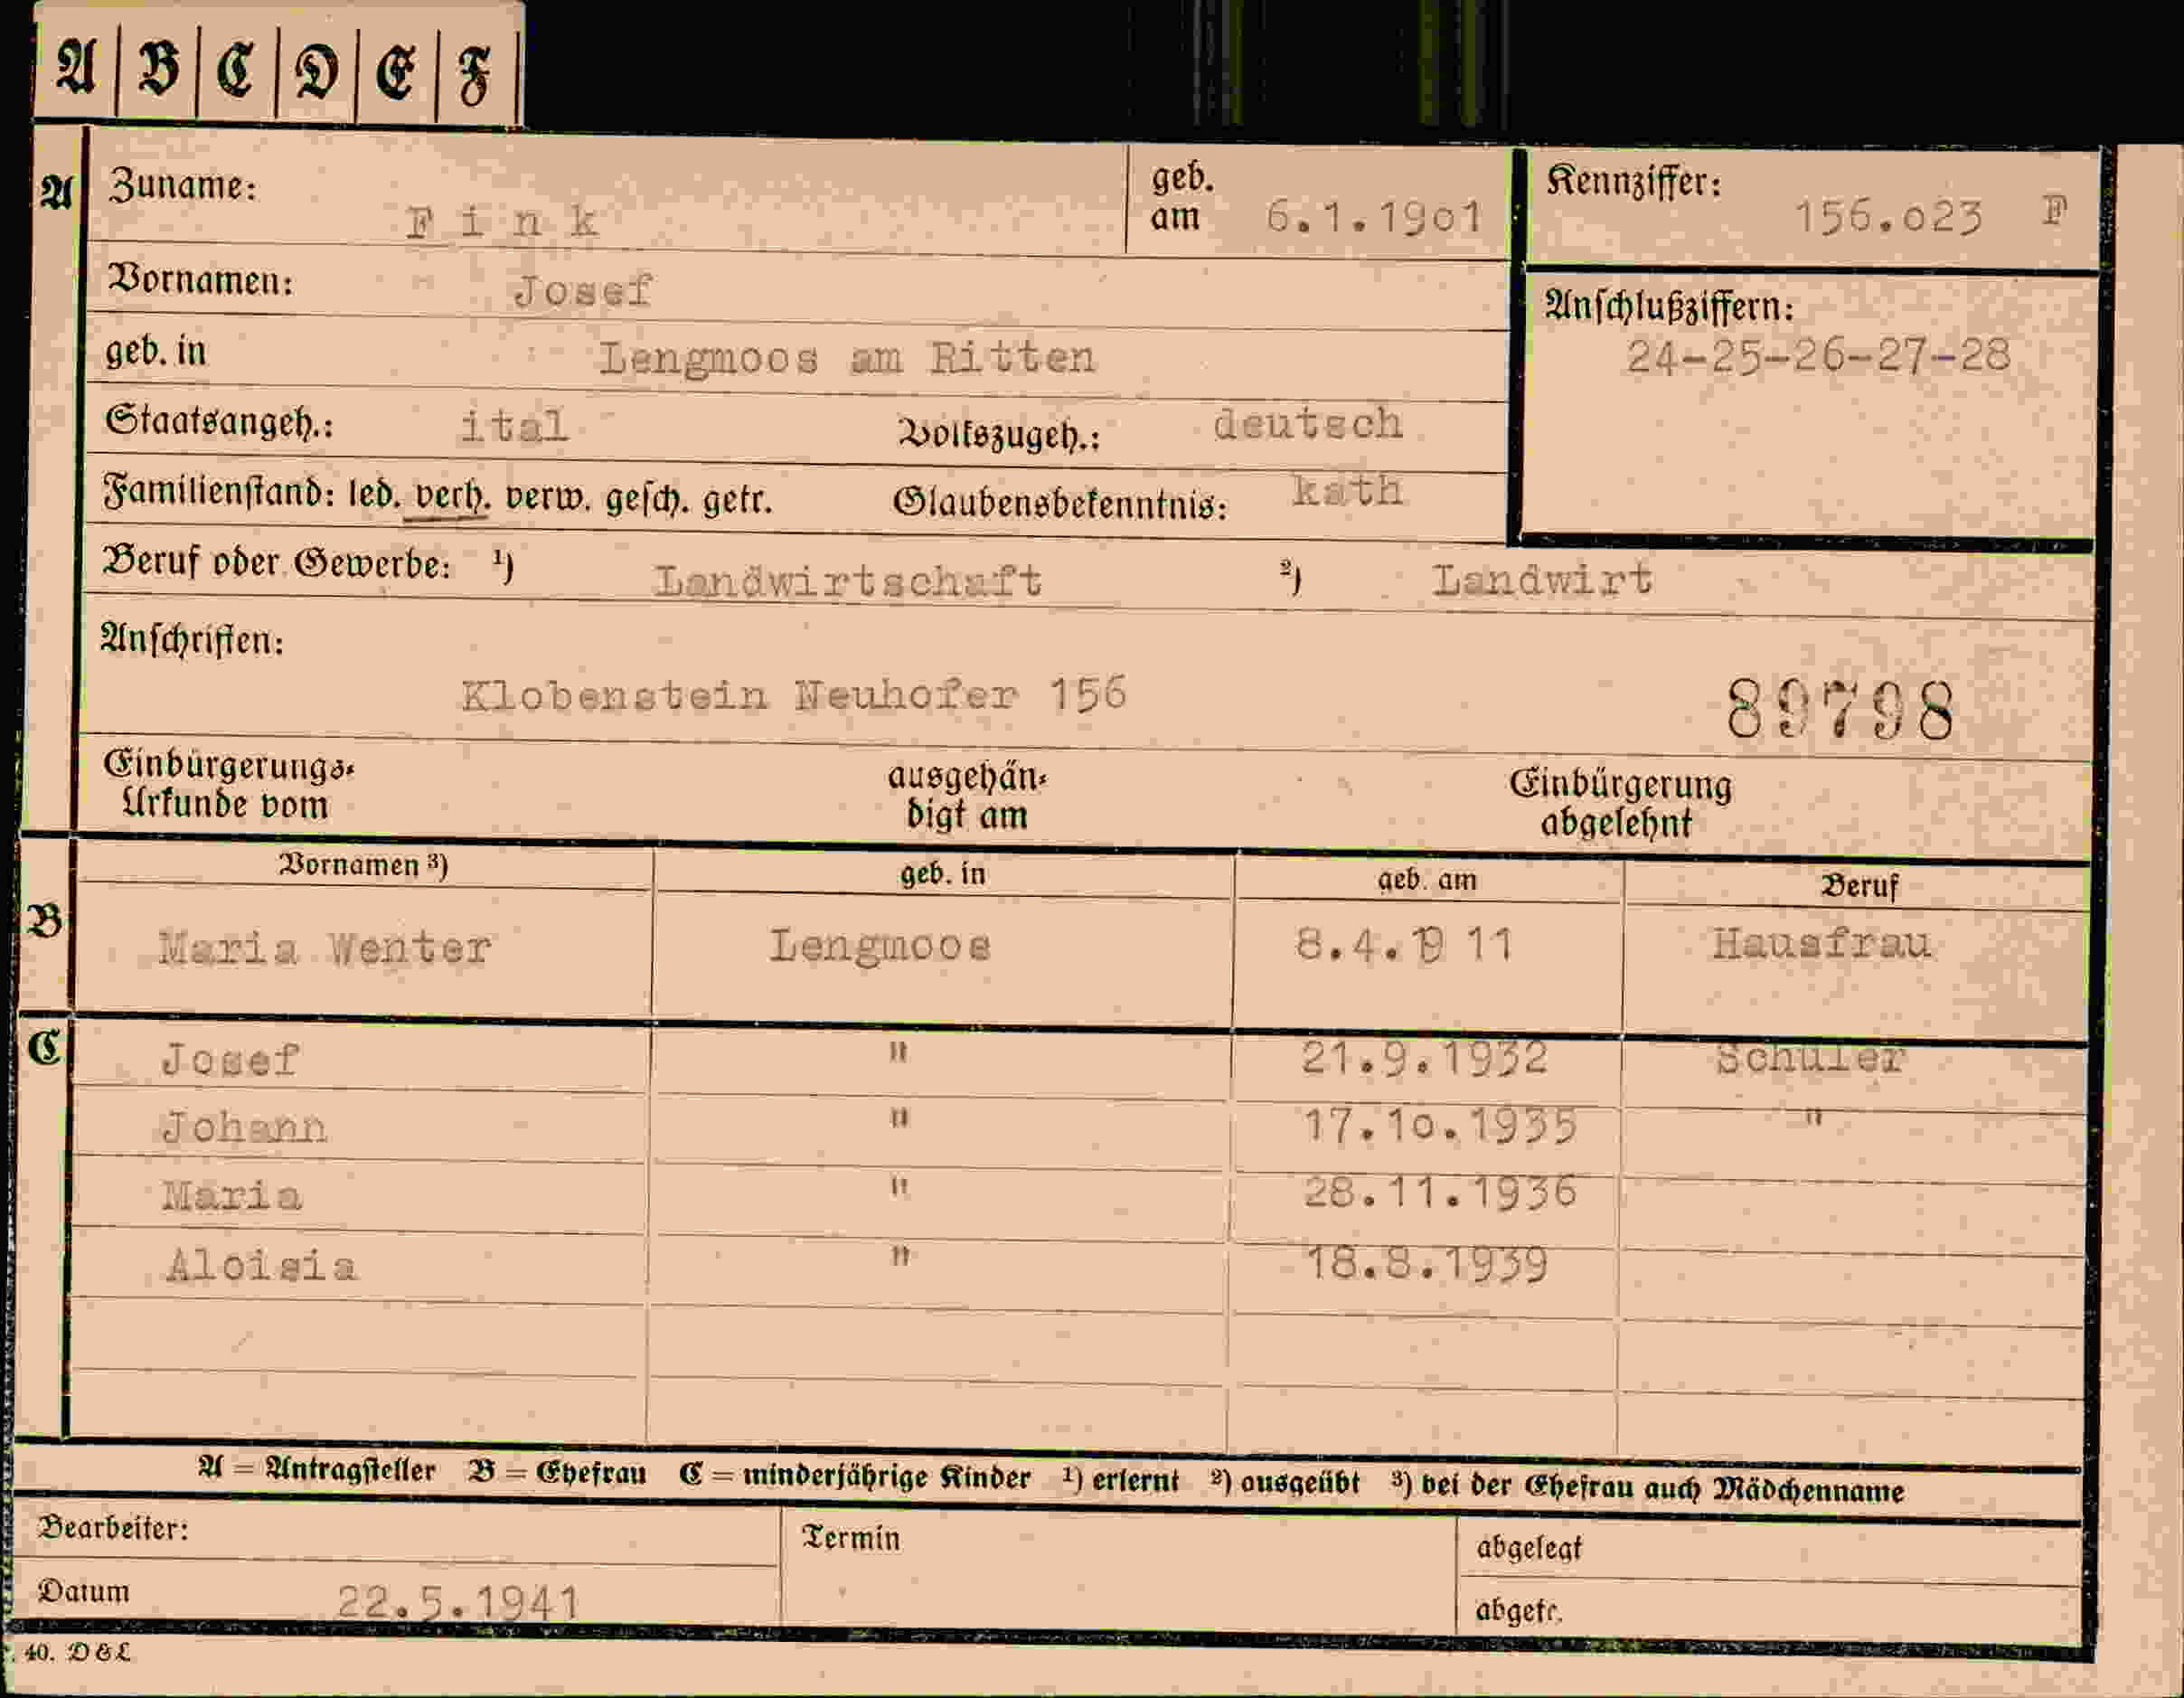 A B C D E F
A Zuname: Fink geb. am 6.1.1901 Kennziffer: 156.023 F
Vornamen: Josef Anschlußziffern:
geb. in Lengmoos am Ritten 24-25-26-27-28
Staatsangeh.: ital Volkszugeh.: deutsch
Familienstand: led. verh. verw. gesch. getr. Glaubensbekenntnis: kath
Beruf oder Gewerbe: ¹) Landwirtschaft ²) Landwirt
Anschriften:
Klobenstein Neuhofer 156 89798
Einbürgerungs- ausgehän- Einbürgerung
Urkunde vom digt am abgelehnt
Vornamen ³) geb. in geb. am Beruf
B Maria Wenter Lengmoos 8.4.19 11 Hausfrau
C Josef " 21.9.1932 Schuler
Johann " 17.10.1935 "
Maria " 28.11.1936
Aloisia " 18.8.1939
A = Antragsteller B = Ehefrau C = minderjährige Kinder ¹) erlernt ²) ausgeübt ³) bei der Ehefrau auch Mädchenname
Bearbeiter: Termin abgelegt
Datum 22.5.1941 abgetr.
40. D & L